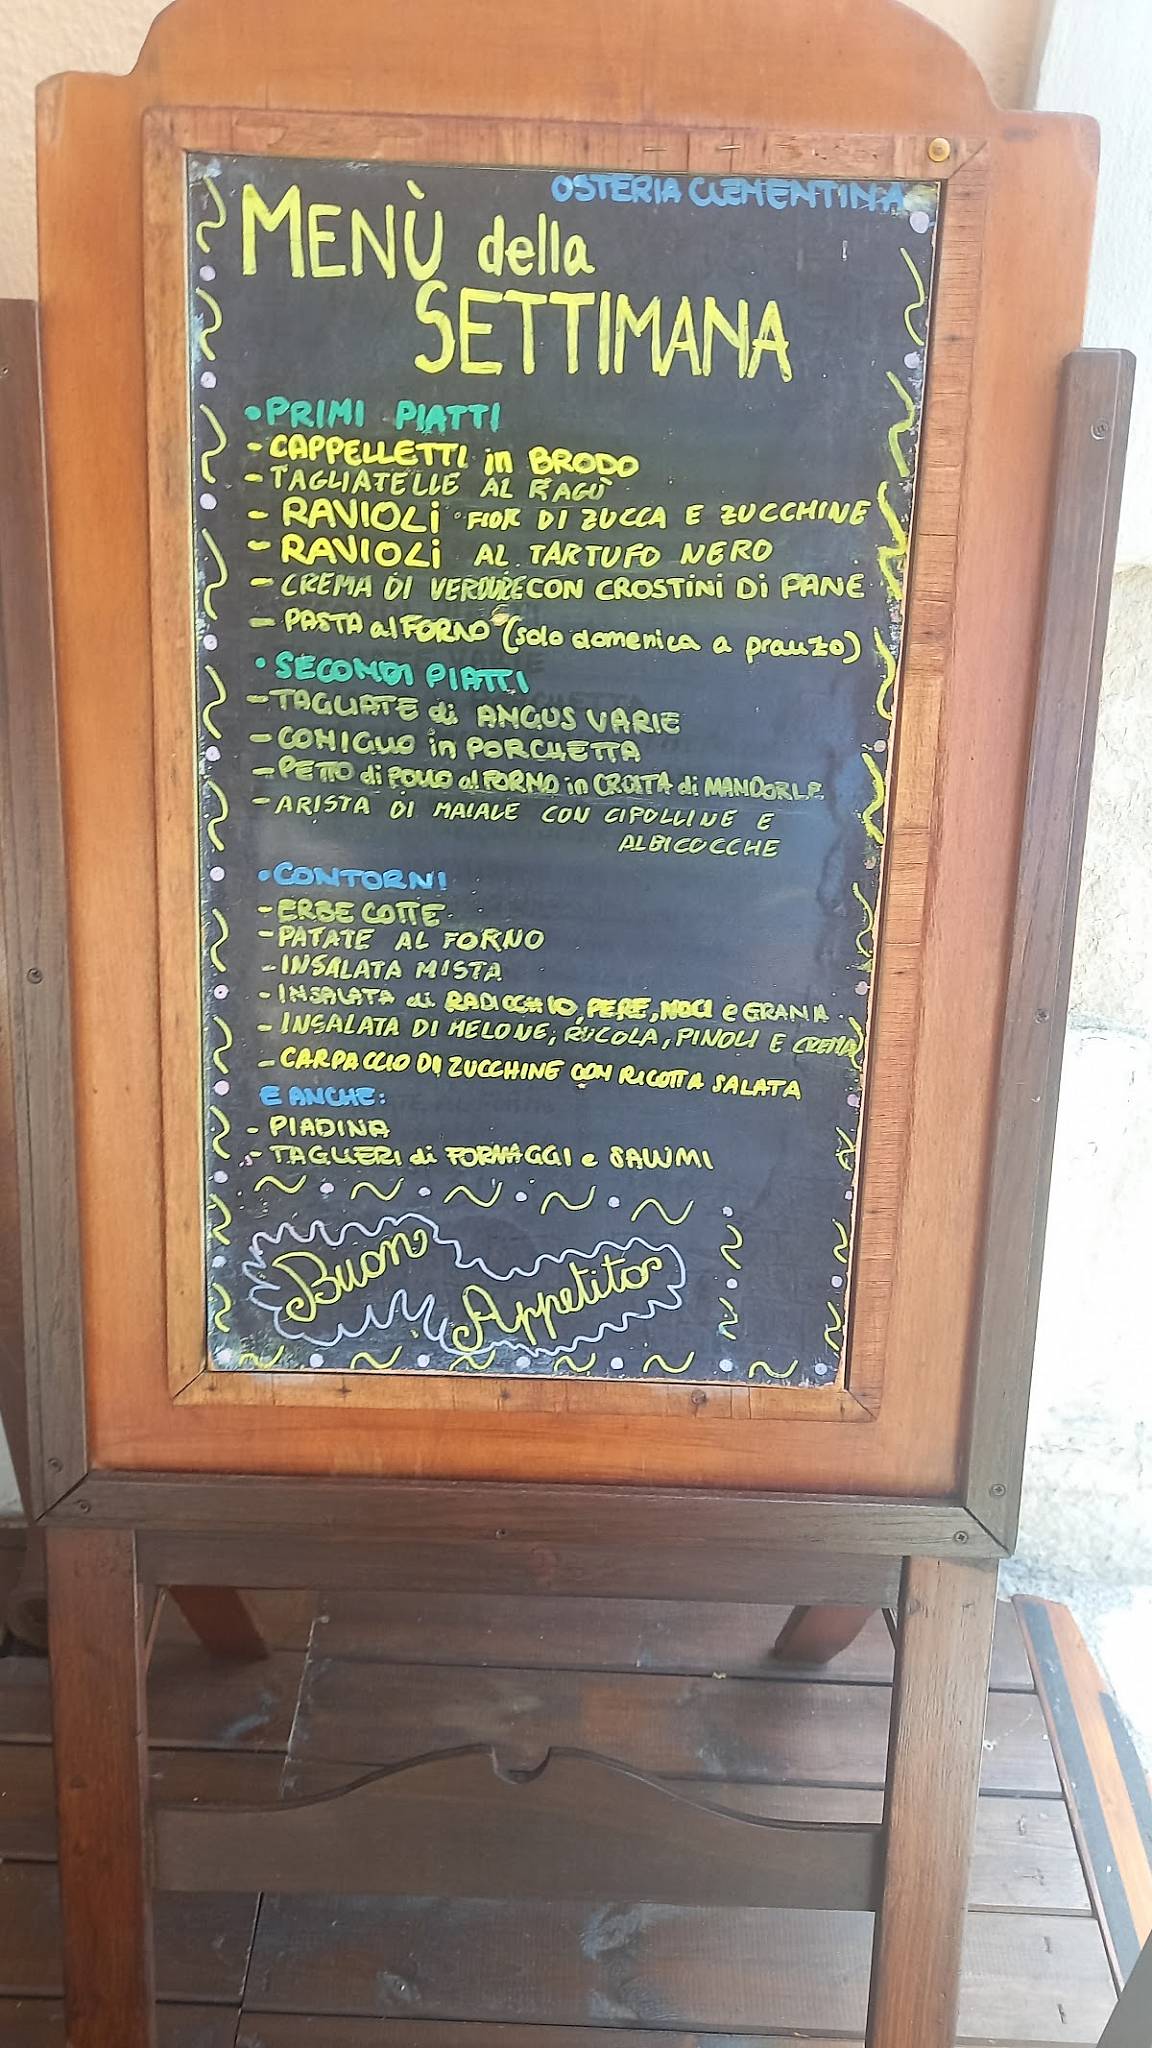 OSTERIA CLEMENTINA
MENÙ della
SETTIMANA
• PRIMI PIATTI
- CAPPELLETTI in BRODO
- TAGLIATELLE AL RAGÙ
- RAVIOLI FIOR DI ZUCCA E ZUCCHINE
- RAVIOLI AL TARTUFO NERO
- CREMA DI VERDURE CON CROSTINI DI PANE
- PASTA al FORNO (solo domenica a pranzo)
• SECONDI PIATTI
- TAGLIATE di ANGUS VARIE
- CONIGLIO in PORCHETTA
- PETTO di POLLO al FORNO in CROSTA di MANDORLE
- ARISTA DI MAIALE CON CIPOLLINE E
ALBICOCCHE
• CONTORNI
- ERBE COTTE
- PATATE AL FORNO
- INSALATA MISTA
- INSALATA di RADICCHIO, PERE, NOCI e GRANA
- INSALATA DI MELONE, RUCOLA, PINOLI E CREMA
- CARPACCIO DI ZUCCHINE CON RICOTTA SALATA
E ANCHE:
- PIADINA
- TAGLIERI di FORMAGGI e SALUMI
Buon
Appetito